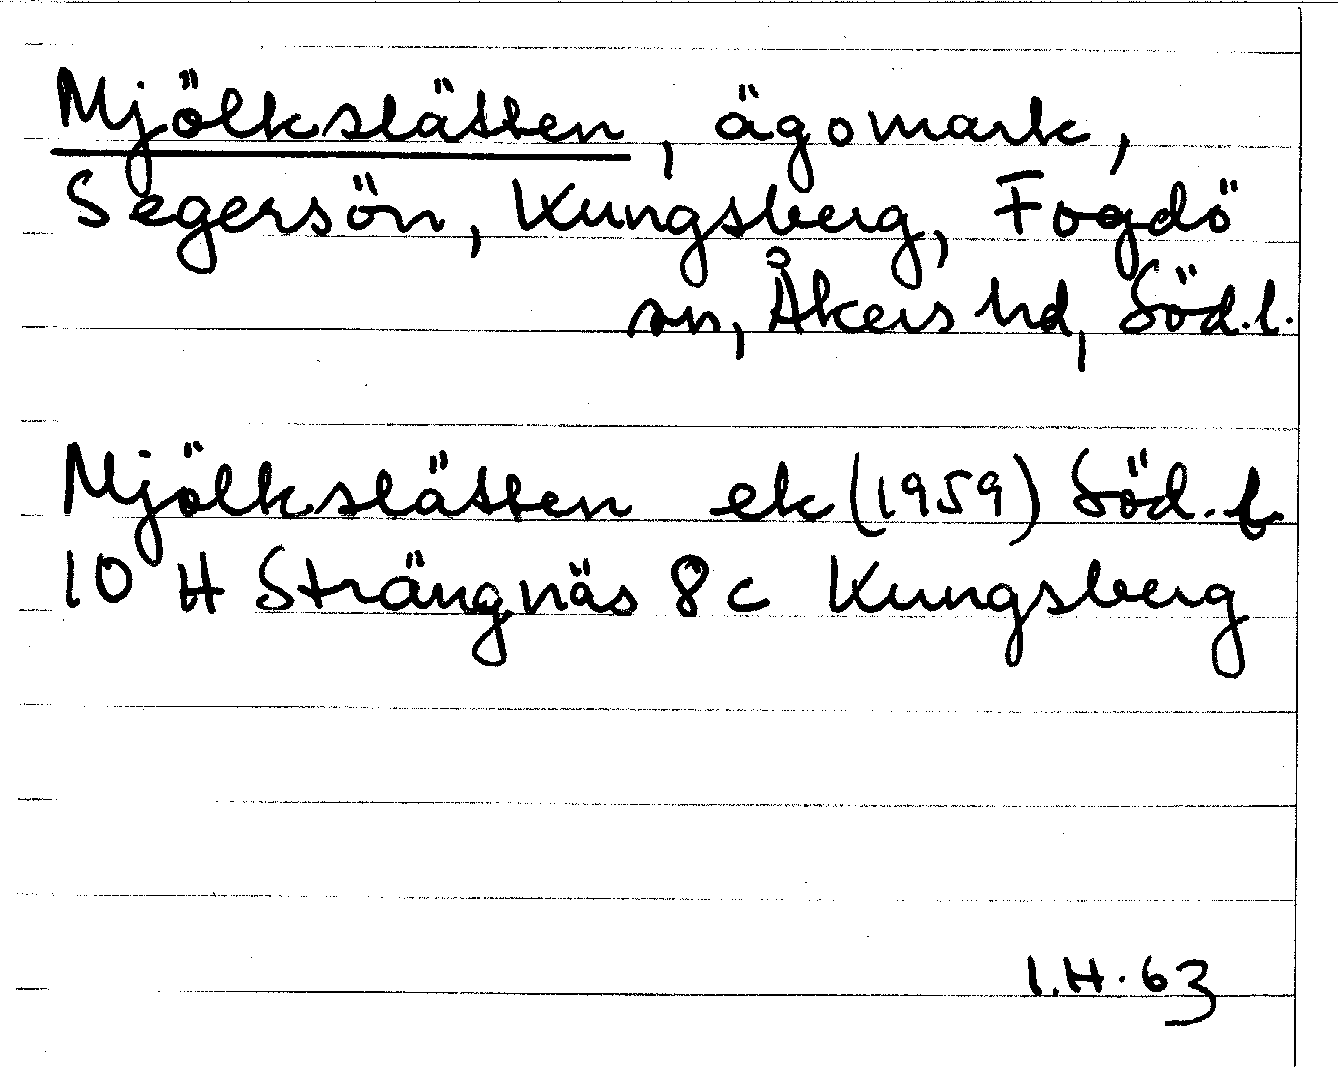 Mjölkslätten, ägomark,
Segersön, Kungsberg, Fogdö
sn, Åkers hd, Söd.l.
Mjölkslätten ek (1959) Söd. l
10 H Strängnäs 8 c Kungsberg
I.H. 63